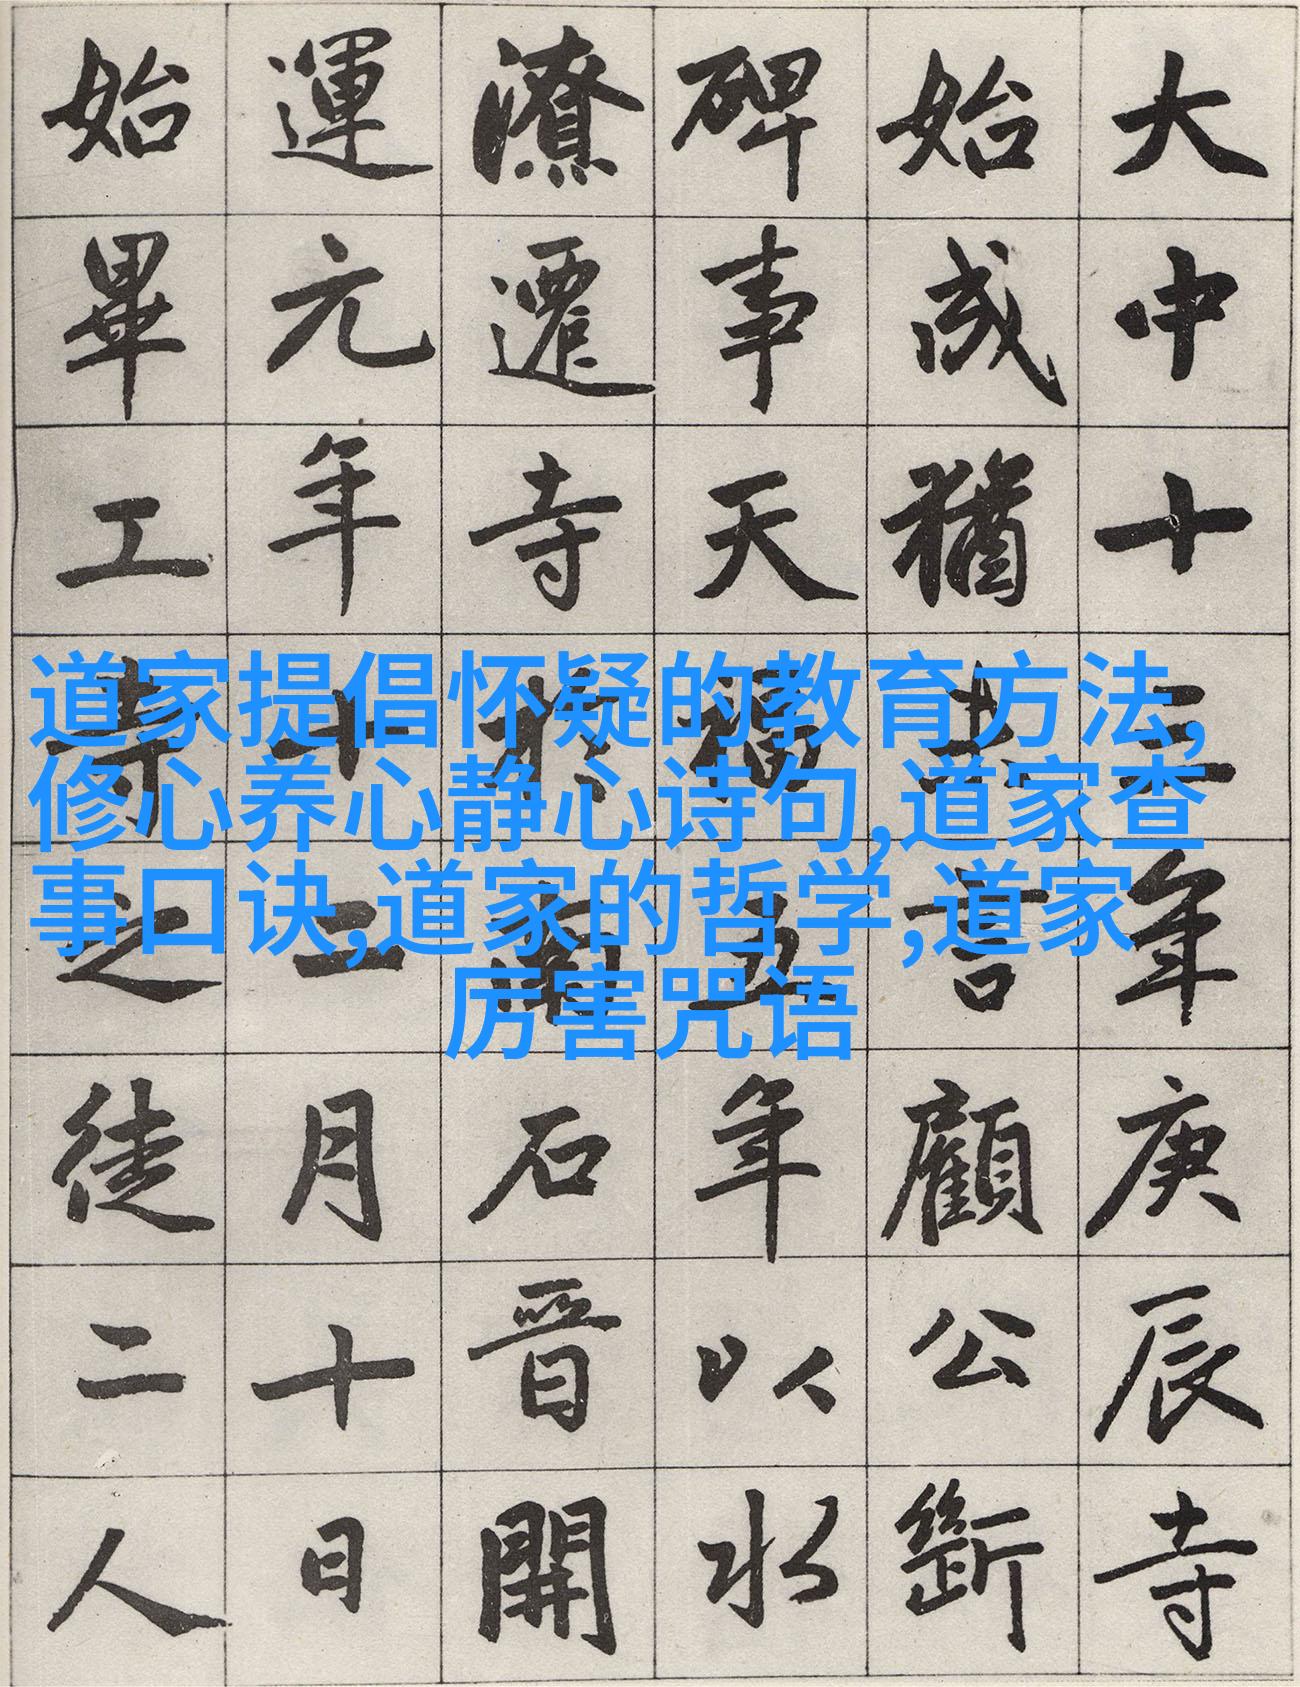 大中十三年庚辰寺
始成猶言顧公斷
碑事天福五年以水
潦遷寺於南石晉開
運元年十二月十日
始畢工寺之徒二人
道家提倡怀疑的教育方法,
修心养心静心诗句,道家查
事口诀,道家的哲学,道家
厉害咒语